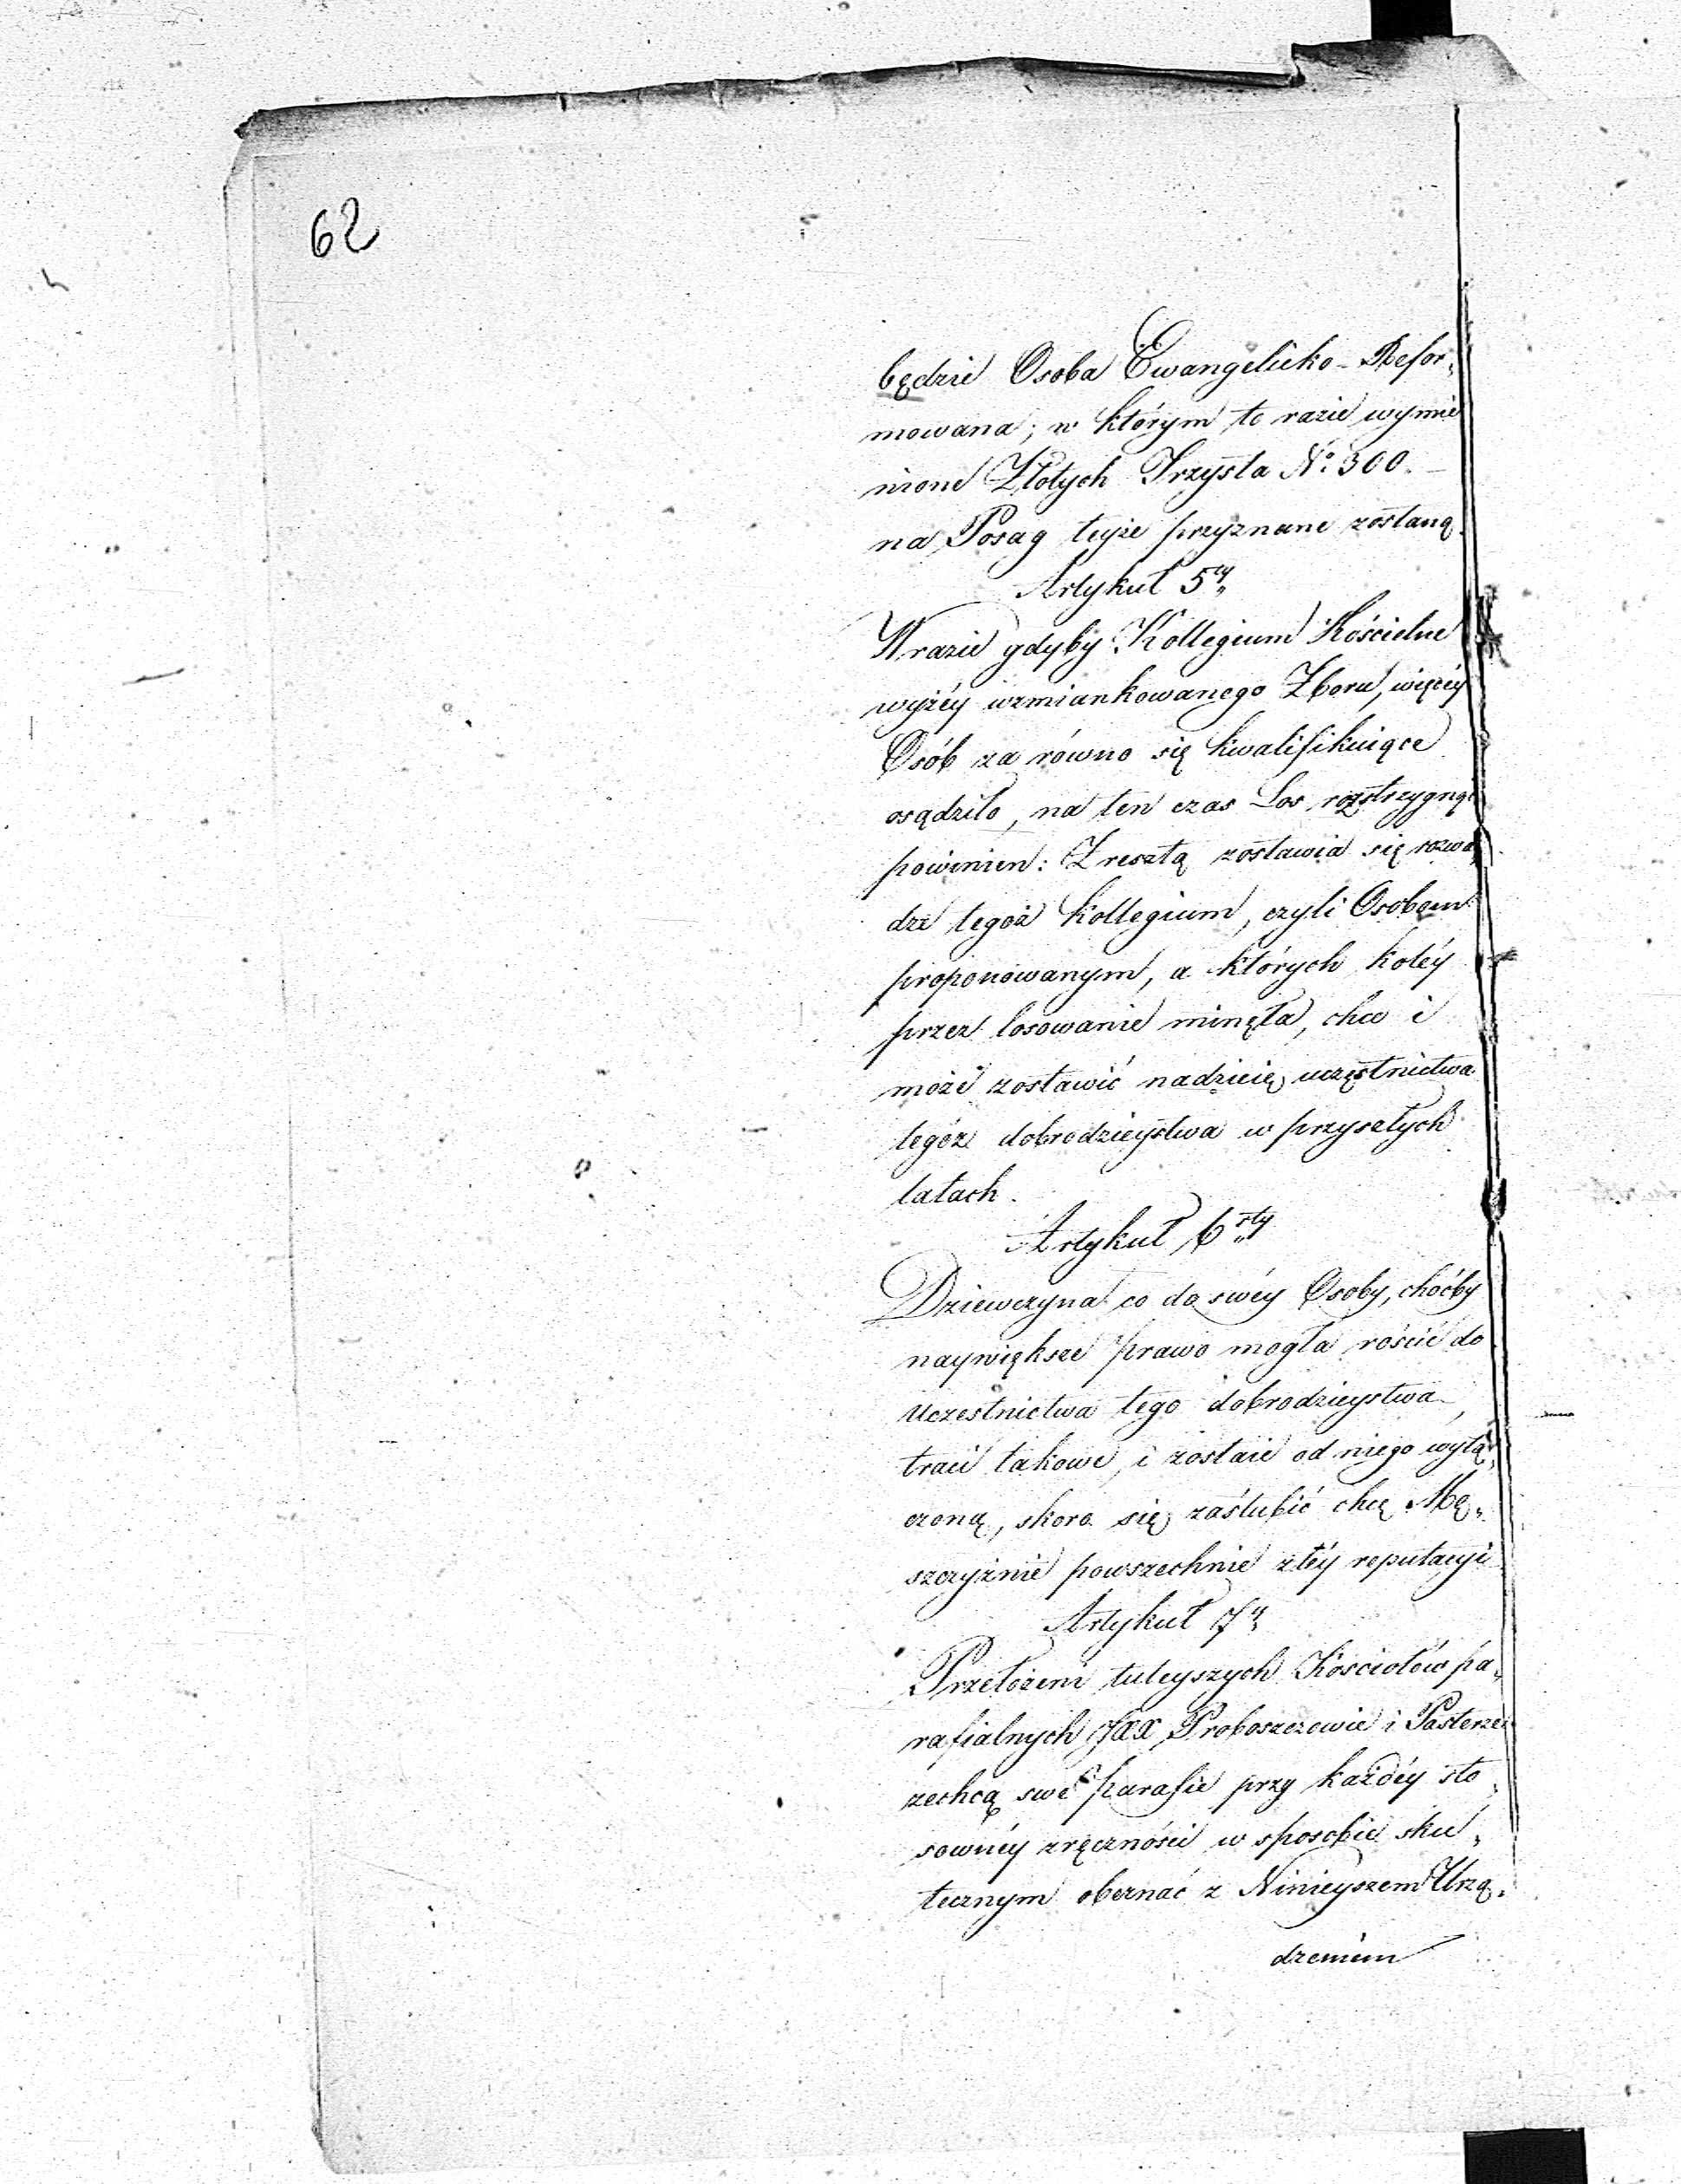 62
będzie Osoba Ewangelicko-Refor„
mowana; w którym to razie wymie
nione Złotych Trzysta No. 300.
na Posag teyże przyznane zostaną.
Artykuł 5ty
W razie gdyby Kollegium Kościelne
wyżéy wzmiankowanego Zboru, więcéy
Osób za równo się kwalifikuiące
osądziło, na ten czas Los rozstrzygnąć
powinien: Z resztą zostawia się
dze tegoż Kollegium, czyli Osobom
proponowanym, a których koléy
przez losowanie minęła, chce i
może zostawić nadzieię uczęstnictwa
tegóż dobrodzieystwa w przyszłych
latach.
Artykuł 6sty
Dziewczyna co do swéy Osoby, choćby
naywiększe prawo mogła rościć do
Uczestnictwa tego dobrodzieystwa,
traci takowe, i zostaie od niego wyłą„
czoną, skoro się zaślubić chcę Mę„
szczyznie powszechnie złéy reputacyi
Artykuł 7y
Przełożeni tuteyszych Kościołów pa„
rafialnych JXX Proboszczowie i Pasterze
zechcą swe parafie przy każdéy sto„
sownéy zręcznóści w sposobie sku„
tecznym obeznać z Ninieyszem Urzą„
dzeniem